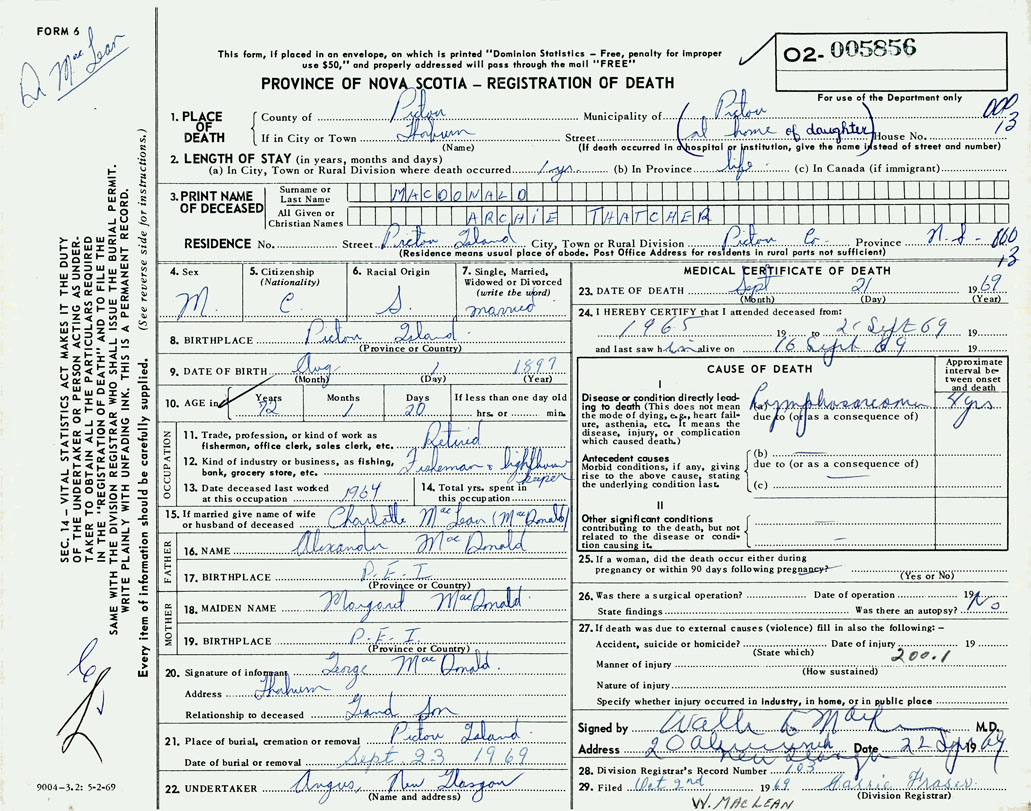 FORM 6
D MacLean
This form, if placed in an envelope, on which is printed "Dominion Statistics – Free, penalty for improper
use $50," and properly addressed will pass through the mail "FREE"
O2- 005856
PROVINCE OF NOVA SCOTIA – REGISTRATION OF DEATH
For use of the Department only
1. PLACE OF DEATH
County of Pictou Municipality of Pictou 000 13
If in City or Town Thorburn Street (at home of daughter) House No.
(Name) (If death occurred in a hospital or institution, give the name instead of street and number)
2. LENGTH OF STAY (in years, months and days)
(a) In City, Town or Rural Division where death occurred 1 yr (b) In Province life (c) In Canada (if immigrant)
3. PRINT NAME OF DECEASED
Surname or Last Name MACDONALD
All Given or Christian Names ARCHIE THATCHER
RESIDENCE No. Street Pictou Island City, Town or Rural Division Pictou Co. Province N.S. 13
(Residence means usual place of abode. Post Office Address for residents in rural parts not sufficient)
4. Sex M.
5. Citizenship (Nationality) C.
6. Racial Origin S.
7. Single, Married, Widowed or Divorced (write the word) married
8. BIRTHPLACE Pictou Island
(Province or Country)
9. DATE OF BIRTH Aug 1 1897
(Month) (Day) (Year)
10. AGE in Years 72 Months 1 Days 20 If less than one day old hrs. or min.
OCCUPATION
11. Trade, profession, or kind of work as fisherman, office clerk, sales clerk, etc. Retired
12. Kind of industry or business, as fishing, bank, grocery store, etc. Fisherman & lighthouse keeper
13. Date deceased last worked at this occupation 1964
14. Total yrs. spent in this occupation
15. If married give name of wife or husband of deceased Charlotte MacLean (MacDonald)
FATHER
16. NAME Alexander MacDonald
17. BIRTHPLACE P.E.I.
(Province or Country)
MOTHER
18. MAIDEN NAME Margaret MacDonald
19. BIRTHPLACE P.E.I.
(Province or Country)
20. Signature of informant George MacDonald
Address Thorburn
Relationship to deceased Grand Son
21. Place of burial, cremation or removal Pictou Island
Date of burial or removal Sept 23 1969
22. UNDERTAKER Angus, New Glasgow
(Name and address)
MEDICAL CERTIFICATE OF DEATH
23. DATE OF DEATH Sept 21 1969
(Month) (Day) (Year)
24. I HEREBY CERTIFY that I attended deceased from:
1965 19 to 21 Sept 69 19
and last saw him alive on 16 Sept 69 19
CAUSE OF DEATH
Approximate interval between onset and death
I
Disease or condition directly leading to death (This does not mean the mode of dying, e.g., heart failure, asthenia, etc. It means the disease, injury, or complication which caused death.)
(a) Lymphosarcoma 4 yrs
due to (or as a consequence of)
Antecedent causes
Morbid conditions, if any, giving rise to the above cause, stating the underlying condition last.
(b)
due to (or as a consequence of)
(c)
II
Other significant conditions
contributing to the death, but not related to the disease or condition causing it.
25. If a woman, did the death occur either during pregnancy or within 90 days following pregnancy?
(Yes or No)
26. Was there a surgical operation? Date of operation 19
State findings Was there an autopsy? No
27. If death was due to external causes (violence) fill in also the following: –
Accident, suicide or homicide? Date of injury 19
(State which) 200.1
Manner of injury
(How sustained)
Nature of injury
Specify whether injury occurred in Industry, in home, or in public place
Signed by M.D.
Address 20 New Glasgow Date 22 Sept 1969
28. Division Registrar's Record Number 103
29. Filed Oct 2nd 1969 Carrie Fraser
(Division Registrar)
W. MACLEAN
SEC. 14 – VITAL STATISTICS ACT MAKES IT THE DUTY
OF THE UNDERTAKER OR PERSON ACTING AS UNDER-
TAKER TO OBTAIN ALL THE PARTICULARS REQUIRED
IN THE "REGISTRATION OF DEATH" AND TO FILE THE
SAME WITH THE DIVISION REGISTRAR WHO SHALL ISSUE THE BURIAL PERMIT.
WRITE PLAINLY WITH UNFADING INK. THIS IS A PERMANENT RECORD.
Every item of information should be carefully supplied. (See reverse side for instructions.)
9004–3.2: 5-2-69